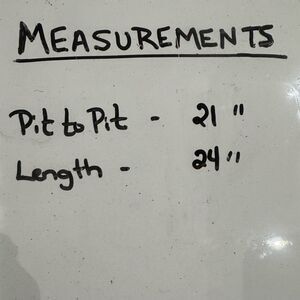 MEASUREMENTS
Pit to Pit - 21 "
Length - 24 "